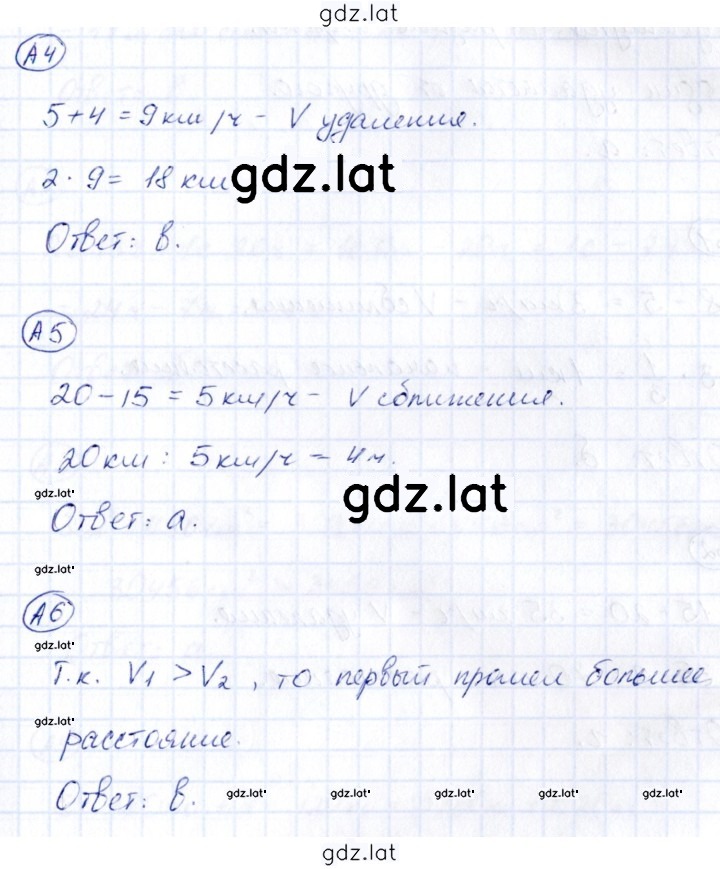 gdz.lat
А4
5+4 = 9 км/ч - V удаления.
2 · 9 = 18 км gdz.lat
Ответ: в.
А5
20-15 = 5 км/ч - V сближения.
20км : 5 км/ч = 4ч.
gdz.lat
gdz.lat
Ответ: а.
gdz.lat
А6
gdz.lat
Т.к. V1 > V2, то первый прошел большее
gdz.lat
расстояние.
Ответ: в. gdz.lat gdz.lat gdz.lat gdz.lat gdz.lat
gdz.lat